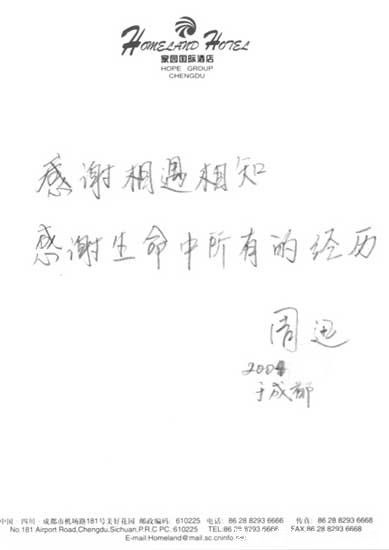 HOMELAND HOTEL
家园国际酒店
HOPE GROUP
CHENGDU
感谢相遇相知
感谢生命中所有的经历
周迅
2004
于成都
中国 四川 成都市机场路181号美好花园 邮政编码: 610225 电话: 86 28 8293 6666 传真: 86 28 8293 6868
No.181 Airport Road,Chengdu,Sichuan,P.R.C PC: 610225 TEL:86 28 8293 6666 FAX:86 28 8293 6868
E-mail:Homeland@mail.sc.cninfo.net